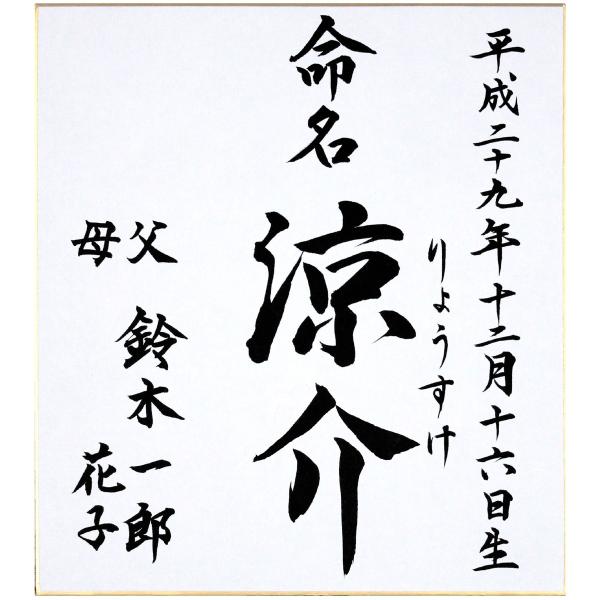 平成二十九年十二月十六日生
りょうすけ
命名 涼介
父 鈴木一郎
母 花子